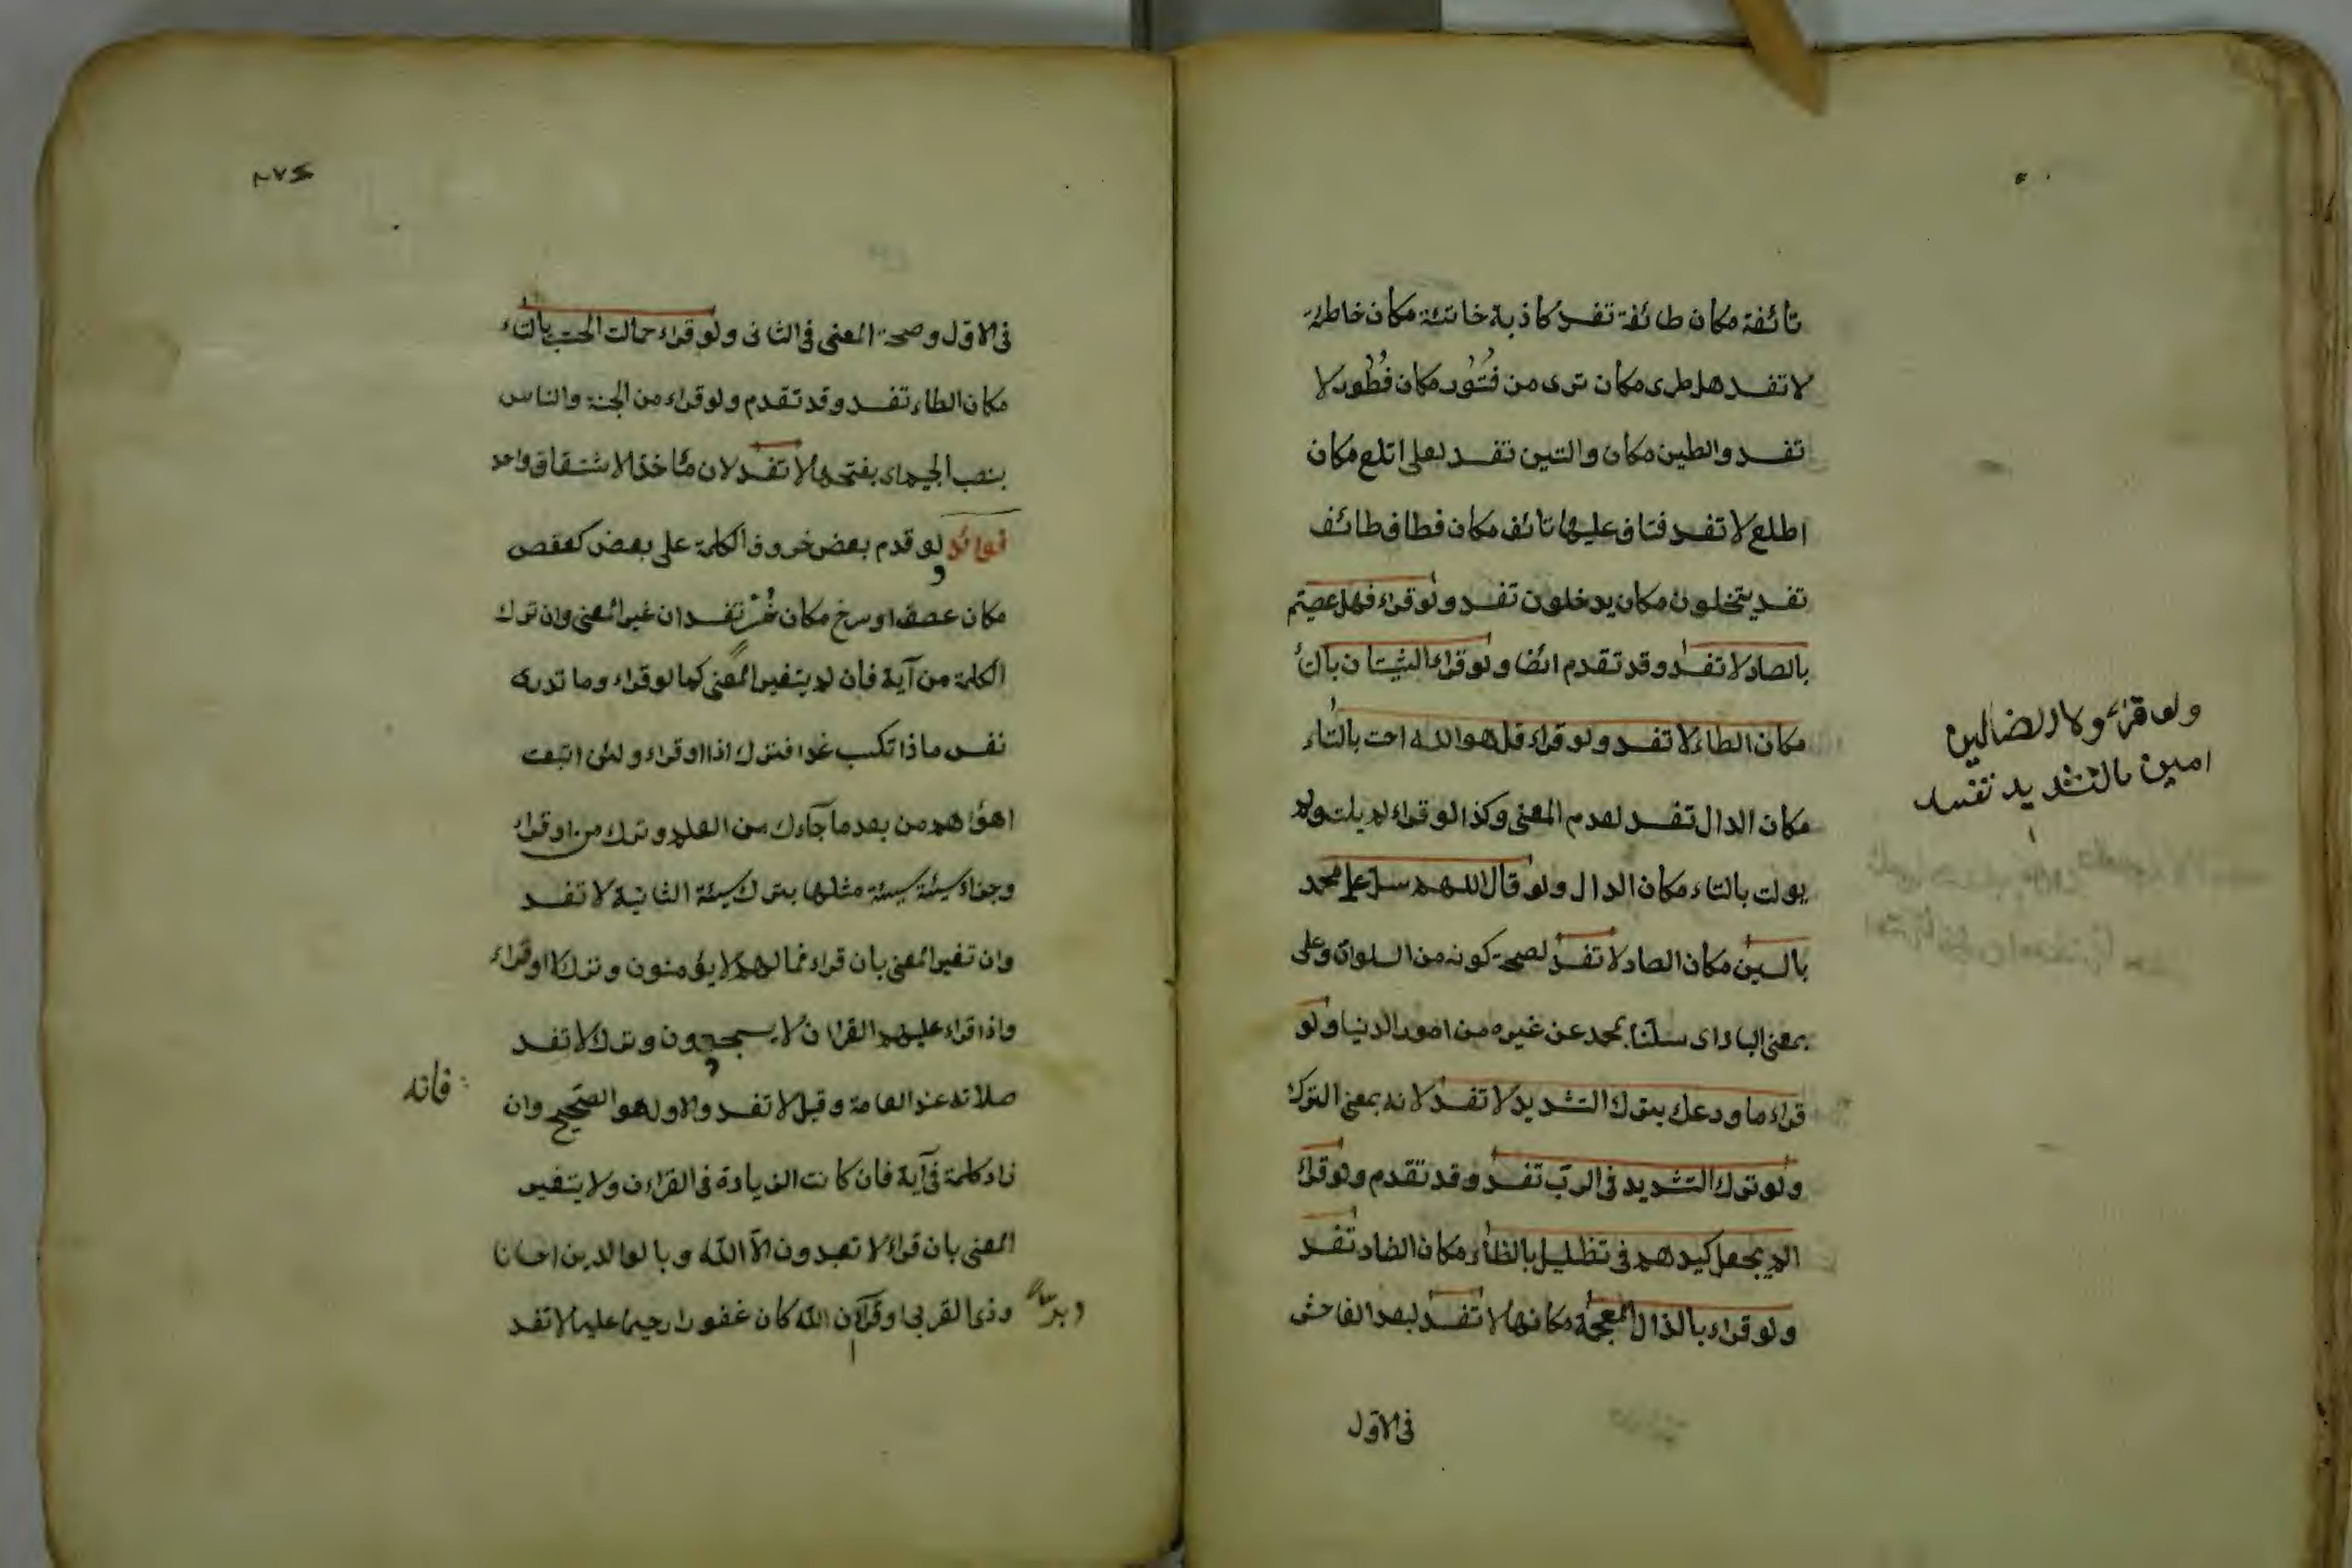 تائفة مكان طائفة تفسد كاذبة خاتئة مكان خاطئة
لا تفسد هل طرى مكان ترى من فُتُور مكان فُطُور لا
تفسد والطين مكان والتين تفسد لعلى اتلع مكان
اطلع لا تفسد فتاف عليها تائف مكان فطاف طائف
تفسد يتخلون مكان يدخلون تفسد ولو قراء فهل عصيتم
بالصاد لا تفسد وقد تقدم ايضا ولو قراء الشيتان بالتاء
مكان الطاء لا تفسد ولو قراء قل هو الله احت بالتاء
مكان الدال تفسد لعدم المعنى وكذا لو قراء لم يلت ولم
يولت بالتاء مكان الدال ولو قال اللهم سل على محمد
بالسين مكان الصاد لا تفسد لصحة كونه من السلوان وعلى
بمعنى الباء اى سلنا بمحمد عن غيره من امور الدنيا ولو
قراء ما ودعك بترك التشديد لا تفسد لانه بمعنى الترك
ولو ترك التشديد فى الرب تفسد وقد تقدم ولو قراء
الم يجعل كيدهم فى تظليل بالظاء مكان الضاد تفسد
ولو قراء بالذال المعجمة مكانها لا تفسد لبعد الفاحش
فى الاول
ولو قراء ولا الضالين
امين بالتشديد تفسد
٢٧٤
فى الاول وصحة المعنى فى الثانى ولو قراء حمالت الحتب بالتاء
مكان الطاء تفسد وقد تقدم ولو قراء من الجنة والناس
بنصب الجيم اى بفتحها لا تفسد لان مأخذ الاشتقاق واحد
فوائد لو قدم بعض حروف الكلمة على بعض كعفص
مكان عصف او سرخ مكان خُسْر تفسد ان غير المعنى وان ترك
الكلمة من آية فان لم يتغير المعنى كما لو قراء وما تدرى
نفس ماذا تكسب غدا فترك اذا او قراء ولئن اتبعت
اهواءهم من بعد ما جآءك من العلم وترك من او قراء
وجزاء سيئة سيئة مثلها بترك سيئة الثانية لا تفسد
وان تغير المعنى بان قراء فما لهم لا يؤمنون وترك لا او قراء
واذا قراء عليهم القران لا يسجدون وترك لا تفسد
صلاته عند العامة وقيل لا تفسد والاول هو الصحيح وان
فانه
زاد كلمة فى آية فان كانت الزيادة فى القران ولا يتغير
المعنى بان قراء لا تعبدون الا الله وبالوالدين احسانا
وذى القربى او قراء ان الله كان غفورا رحيما عليما لا تفسد